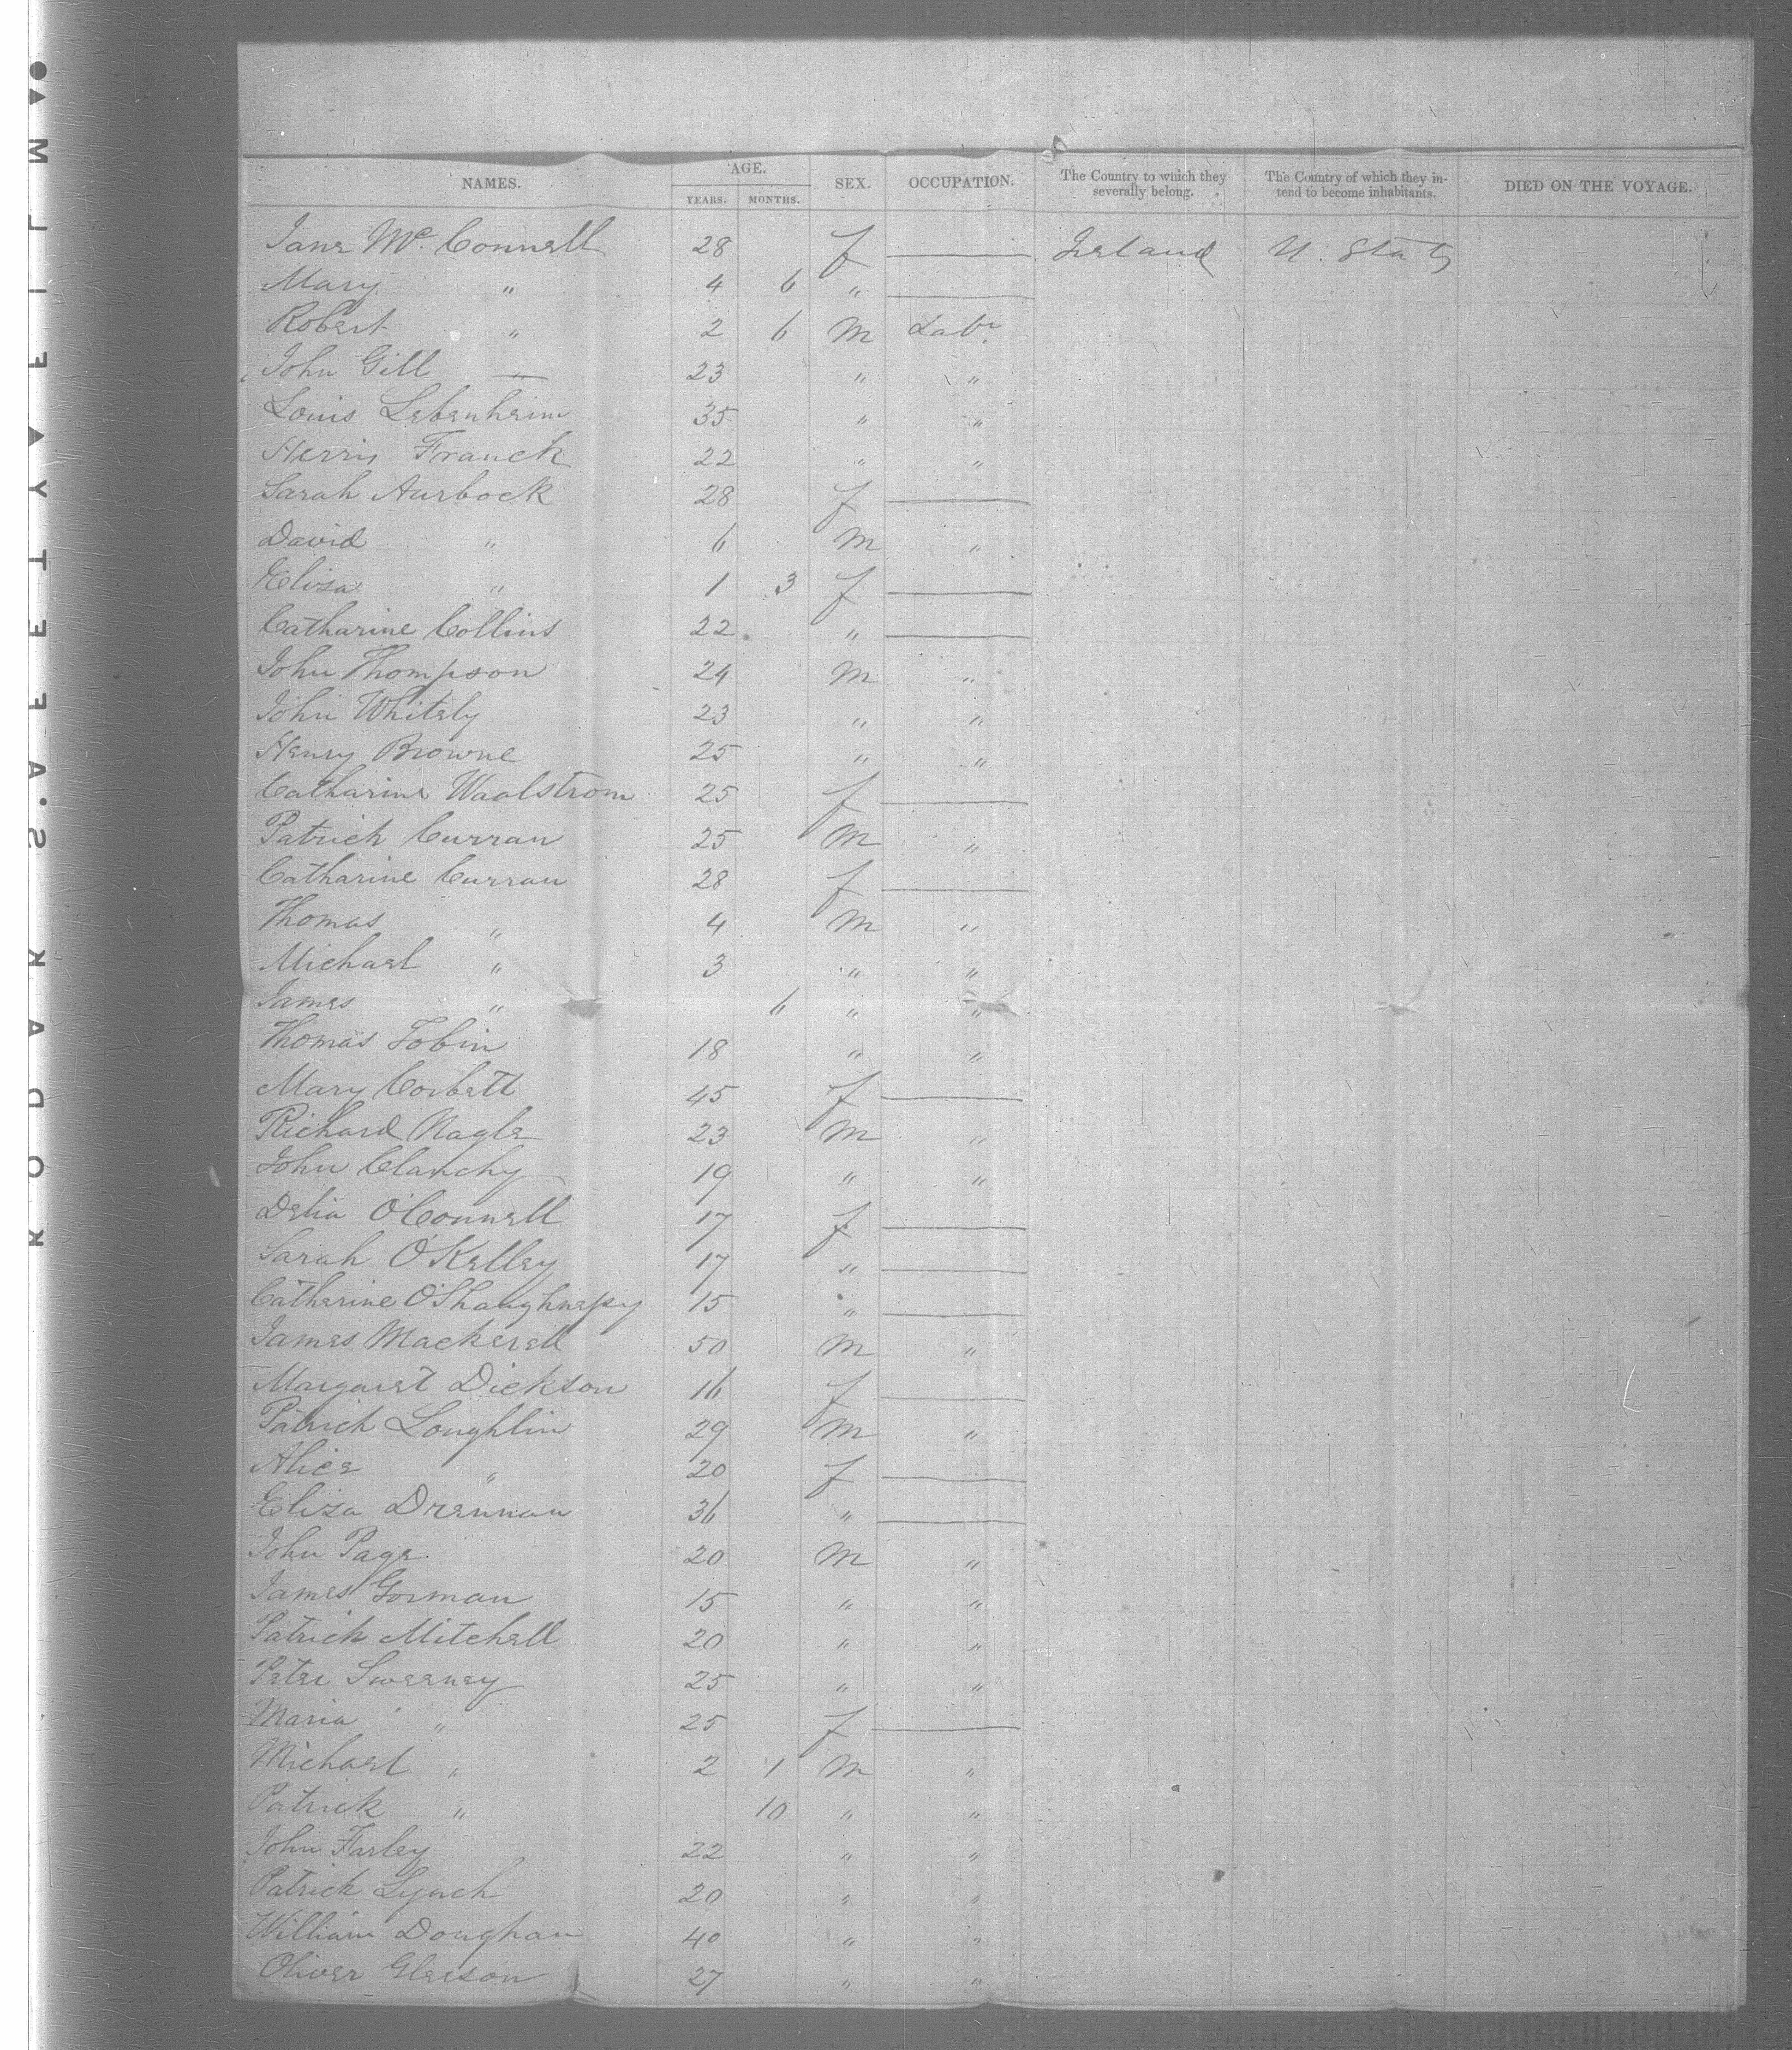 NAMES. AGE. YEARS. MONTHS. SEX. OCCUPATION. The Country to which they severally belong. The Country of which they intend to become inhabitants. DIED ON THE VOYAGE.
Jane Mc. Connell 28 f — Ireland U. States
Mary " 4 6 " —
Robert " 2 6 M Labr.
John Gill — 23 " "
Louis Lebenheim 35 " "
Franck 22 " "
Sarah Aurbock 28 f —
David " 6 M "
Eliza " 1 3 f —
Catharine Collins 22 " —
John Thompson 24 M "
John Whitely 23 " "
Henry Browne 25 " "
Catharine Waalstrom 25 f —
Patrick Curran 25 M "
Catharine Curran 28 f —
Thomas " 4 M "
Michael " 3 " "
James " 6 " "
Thomas Tobin 18 " "
Mary Corbett 45 f —
Richard Nagle 23 M "
John Clanchy 19 " "
Delia O'Connell 17 f —
Sarah O'Kelley 17 " —
Catherine O'Shaughnessy 15 " —
James Mackerell 50 M "
Margaret Dickson 16 f —
Patrick Loughlin 29 M "
Alice " 20 f —
Eliza Drennan 36 " —
John Page 20 M "
James Gorman 15 " "
Patrick Mitchell 20 " "
Peter Sweeney 25 " "
Maria " 25 f —
Michael " 2 1 M "
Patrick " 10 " "
John Farley 22 " "
Patrick Lynch 20 " "
William Doughan 40 " "
Oliver Gleeson 27 " "